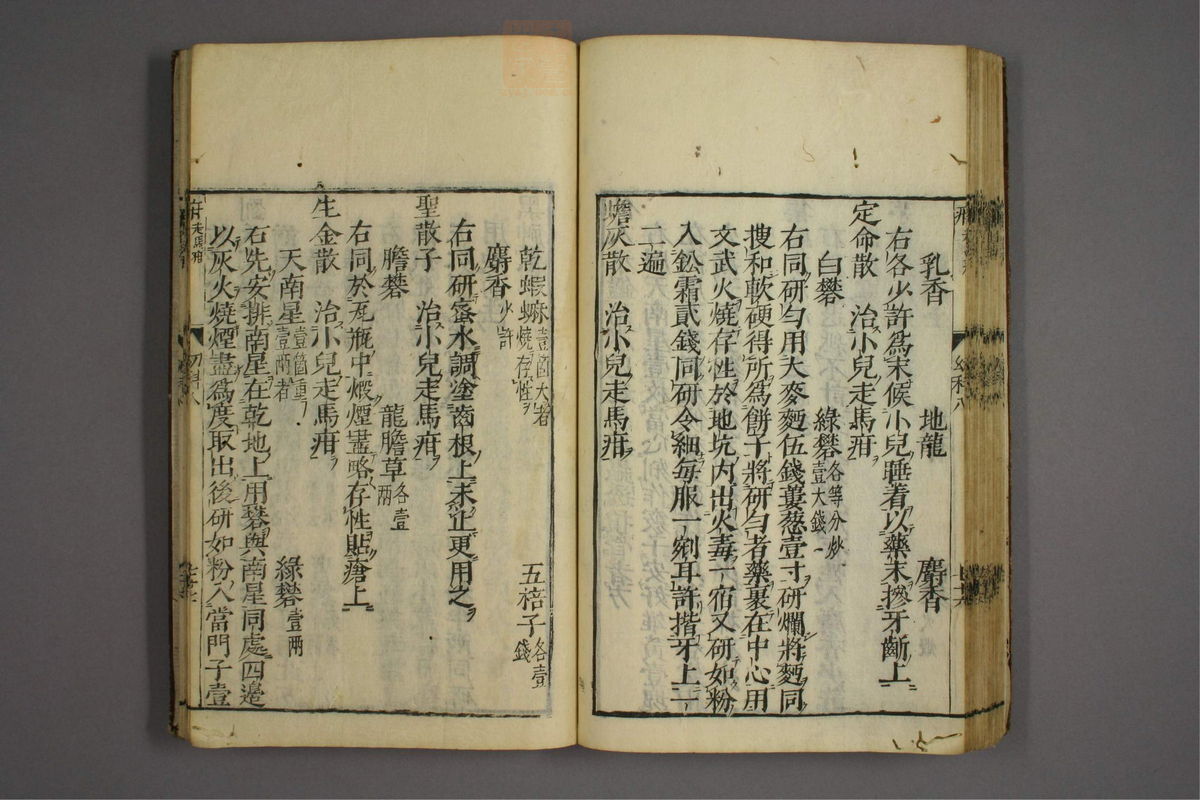 乳香　地龍　麝香
右各少許爲末候小兒睡着以藥末摻牙齗上
定命散　治小兒走馬疳
白礬　綠礬各等分炒壹大錢
右同研勻用大麥麪伍錢蔥壹寸研爛將麪同
搜和軟硬得所爲餅子將研勻者藥裹在中心用
文武火燒存性於地坑內出火毒一宿又研如粉
入鈆霜貳錢同研令細每服一剜耳許揩牙上一
二遍
蟾灰散　治小兒走馬疳
乾蝦蟆壹箇大者燒存性　五棓子各壹錢
麝香少許
右同研蜜水調塗齒根上未止更用之
聖散子　治小兒走馬疳
膽礬　龍膽草各壹兩
右同於瓦瓶中煅煙盡略存性貼瘡上
生金散　治小兒走馬疳
天南星壹箇重壹兩者　綠礬壹兩
右先安排南星在乾地上用礬與南星同處四邊
以灰火燒煙盡爲度取出後研如粉入當門子壹